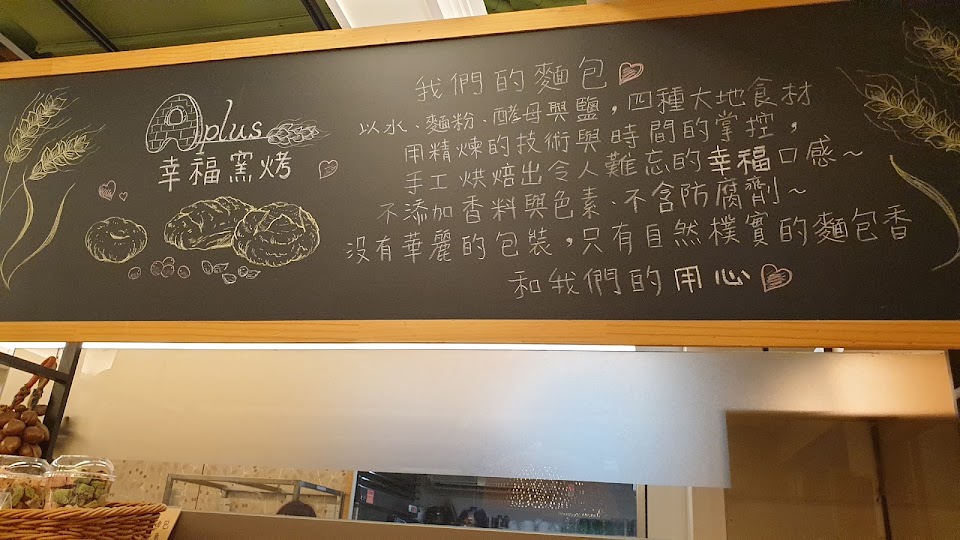 plus
幸福窯烤
我們的麵包
以水、麵粉、酵母與鹽，四種大地食材
用精煉的技術與時間的掌控，
手工烘焙出令人難忘的幸福口感～
不添加香料與色素、不含防腐劑～
沒有華麗的包裝，只有自然樸實的麵包香
和我們的用心